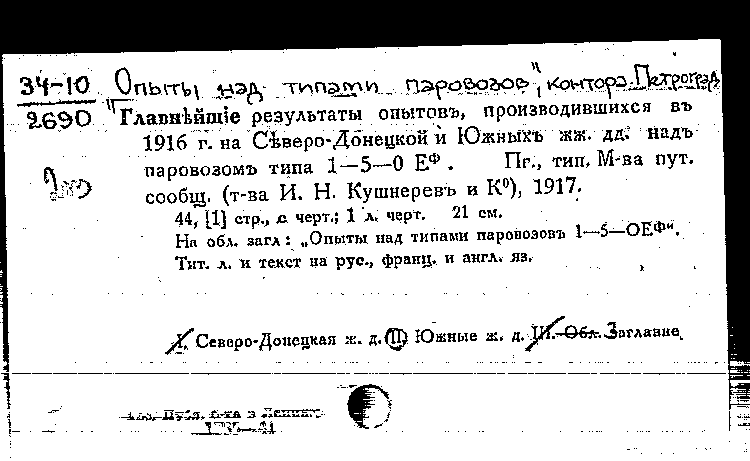 34-10 Опыты над типами паровозов", контора Петроград
2690 "Главнѣйшіе результаты опытовъ, производившихся въ
1916 г. на Сѣверо-Донецкой и Южныхъ жж. дд. надъ
паровозомъ типа 1—5—0 Еф. Пг., тип. М-ва пут.
сообщ. (т-ва И. Н. Кушнеревъ и К⁰), 1917.
44, [1] стр., с черт.; 1 л. черт. 21 см.
На обл. загл: „Опыты над типами паровозовъ 1—5—ОЕФ“.
Тит. л. и текст на рус., франц. и англ. яз.
I. Северо-Донецкая ж. д. II. Южные ж. д. III. Обл. Заглавие.
Публ. б-ка в Ленинг